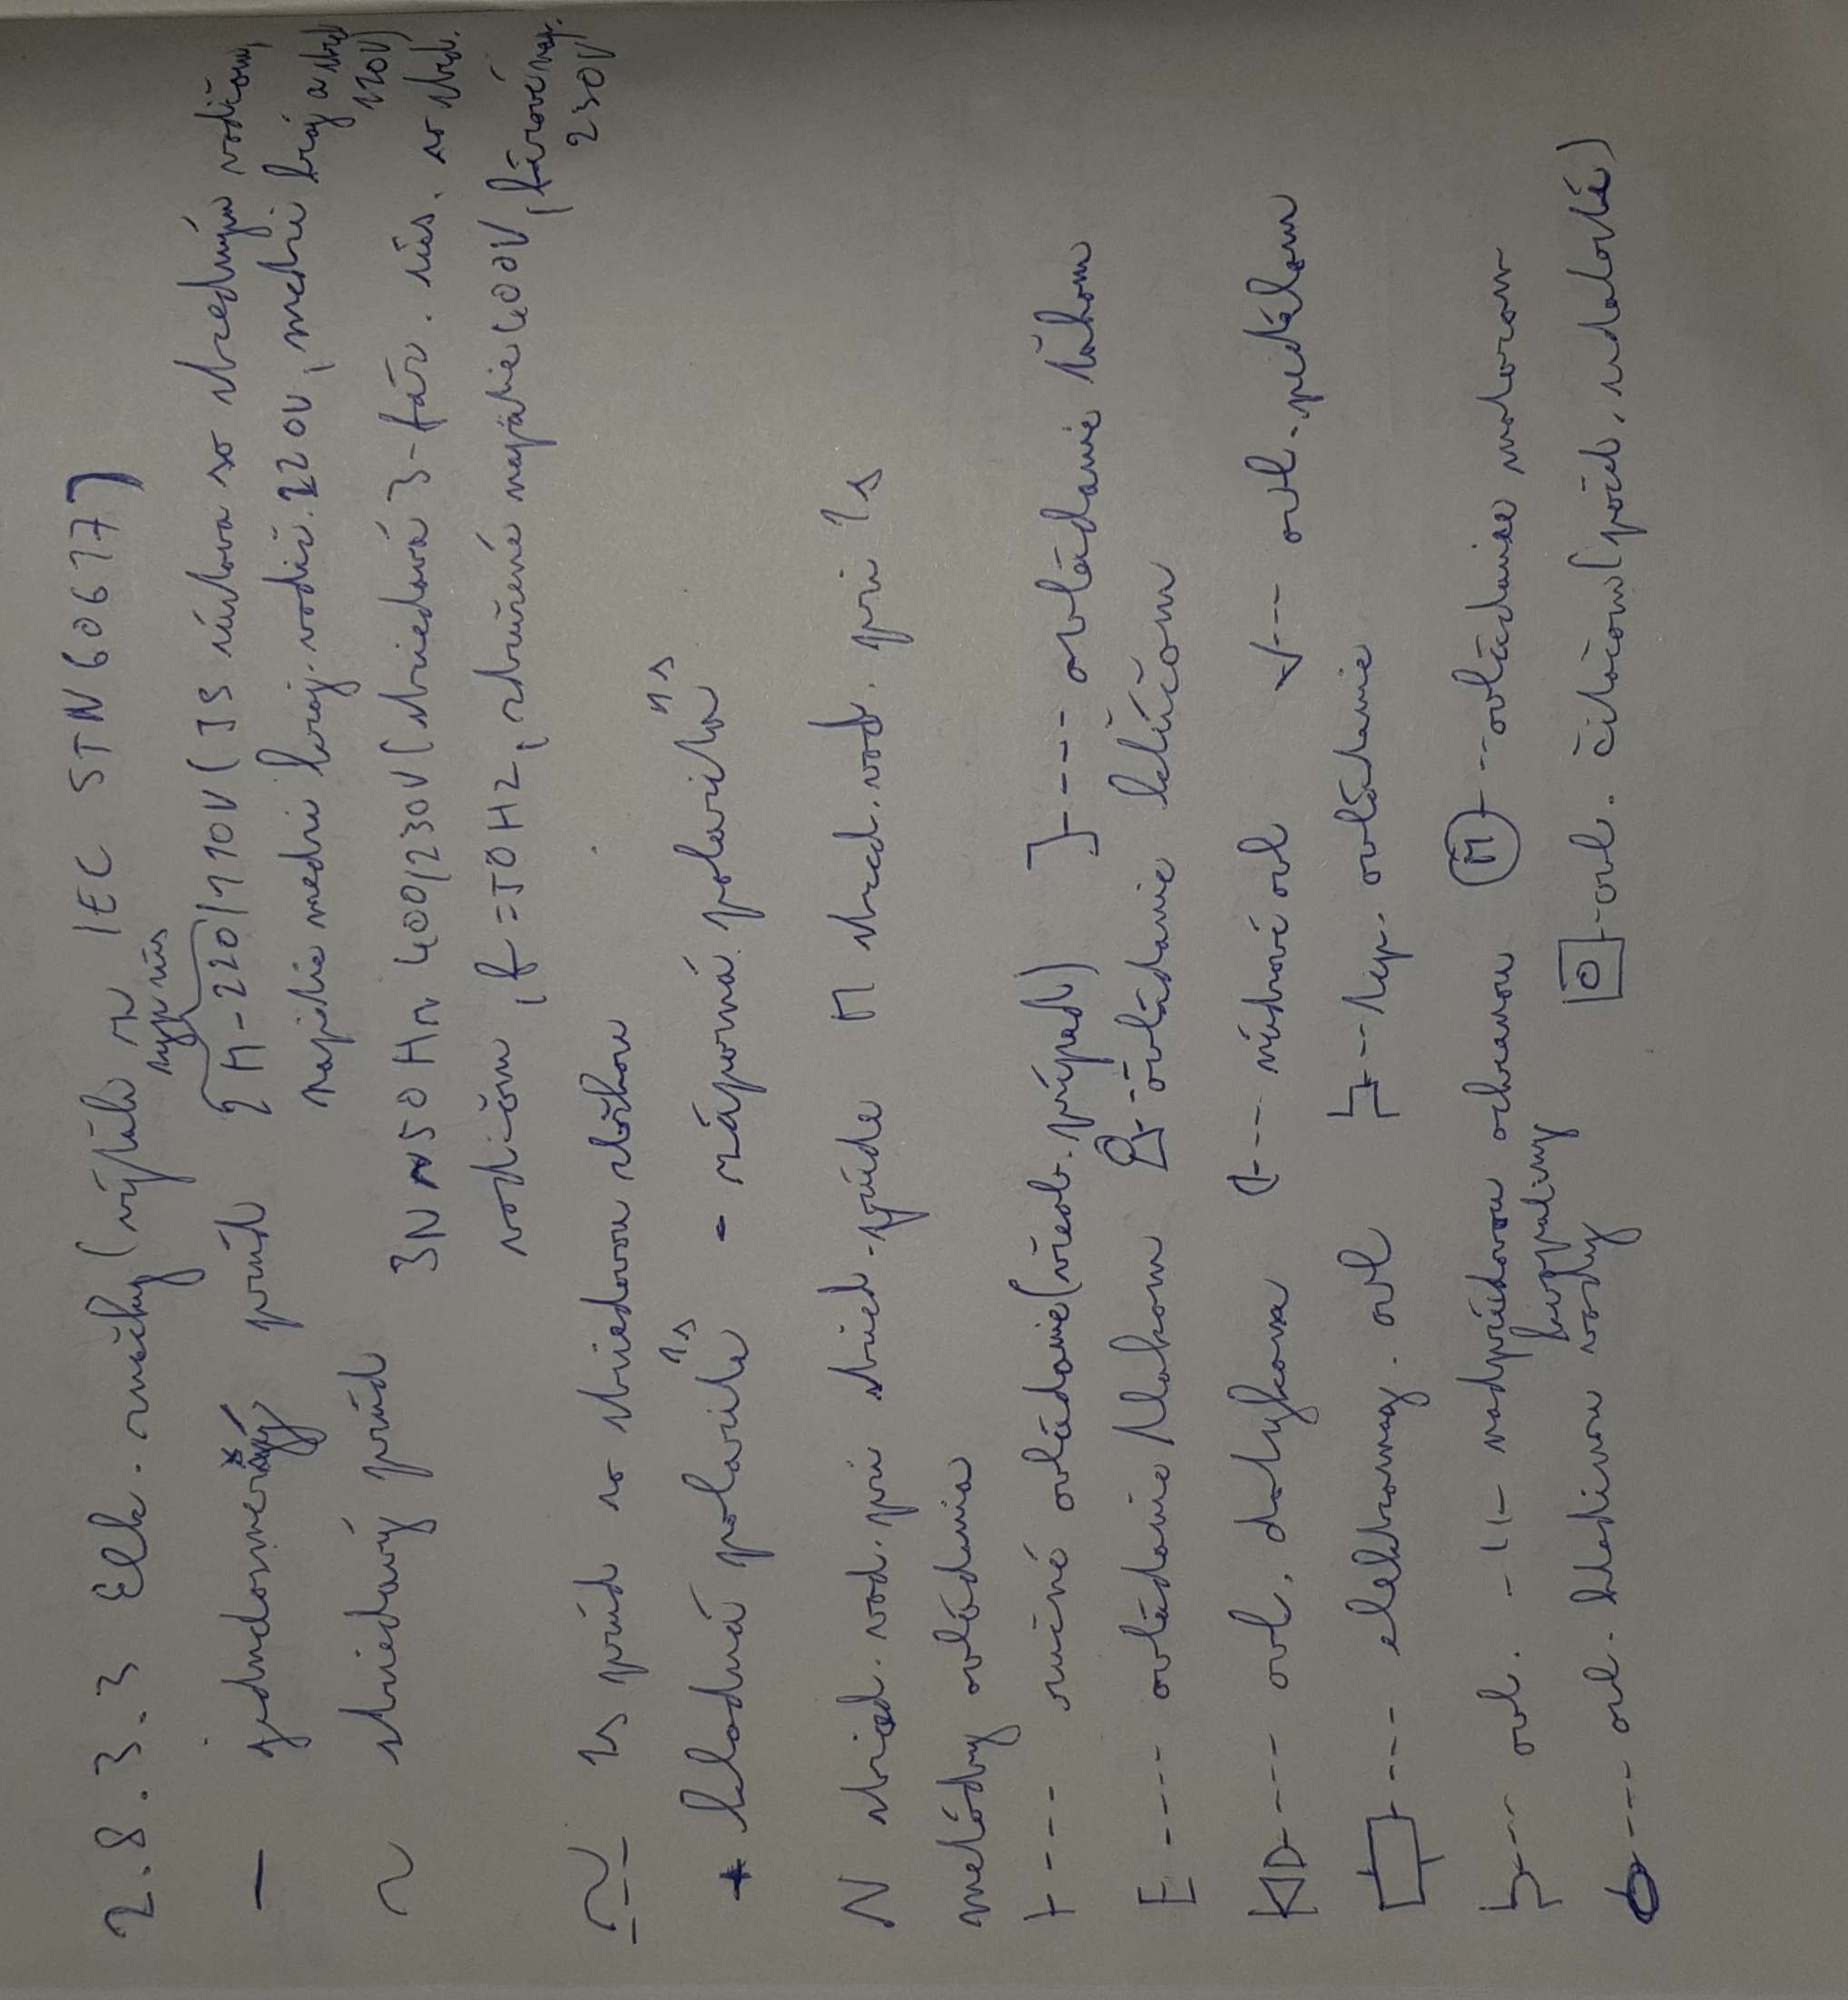 2.8.3.3 Elk. značky (výťah z IEC STN 60617)
typ nás
— jednosmerný prúd 2M-220/110V (JS sústava so stredným vodičom,
napätie medzi kraj. vodič. 220V, medzi kraj a stred
110V)
~ striedavý prúd 3N~50Hz 400/230V (striedavá 3-fáz. sús. so stred.
vodičom, f=50Hz, združené napätie 400V, fázové nap.
230V
js prúd so striedavou zložkou
+ kladná polarita js - záporná polarita js
N stried. vod. pri stried. prúde M stred. vod. pri js
metódy ovládania
|---- ručné ovládanie (všeob. prípad) ]---- ovládanie ťahom
E---- ovládanie tlakom ovládanie kľúčom
--- ovl. dotykova --- núdzové ovl --- ovl. pedálom
--- elektromag. ovl --- tep. ovládanie
--- ovl. -11- nadprúdovou ochranou M --ovládanie motorom
kvapaliny
--- ovl. hladinou vody ovl. čítačom (počet. udalostí)